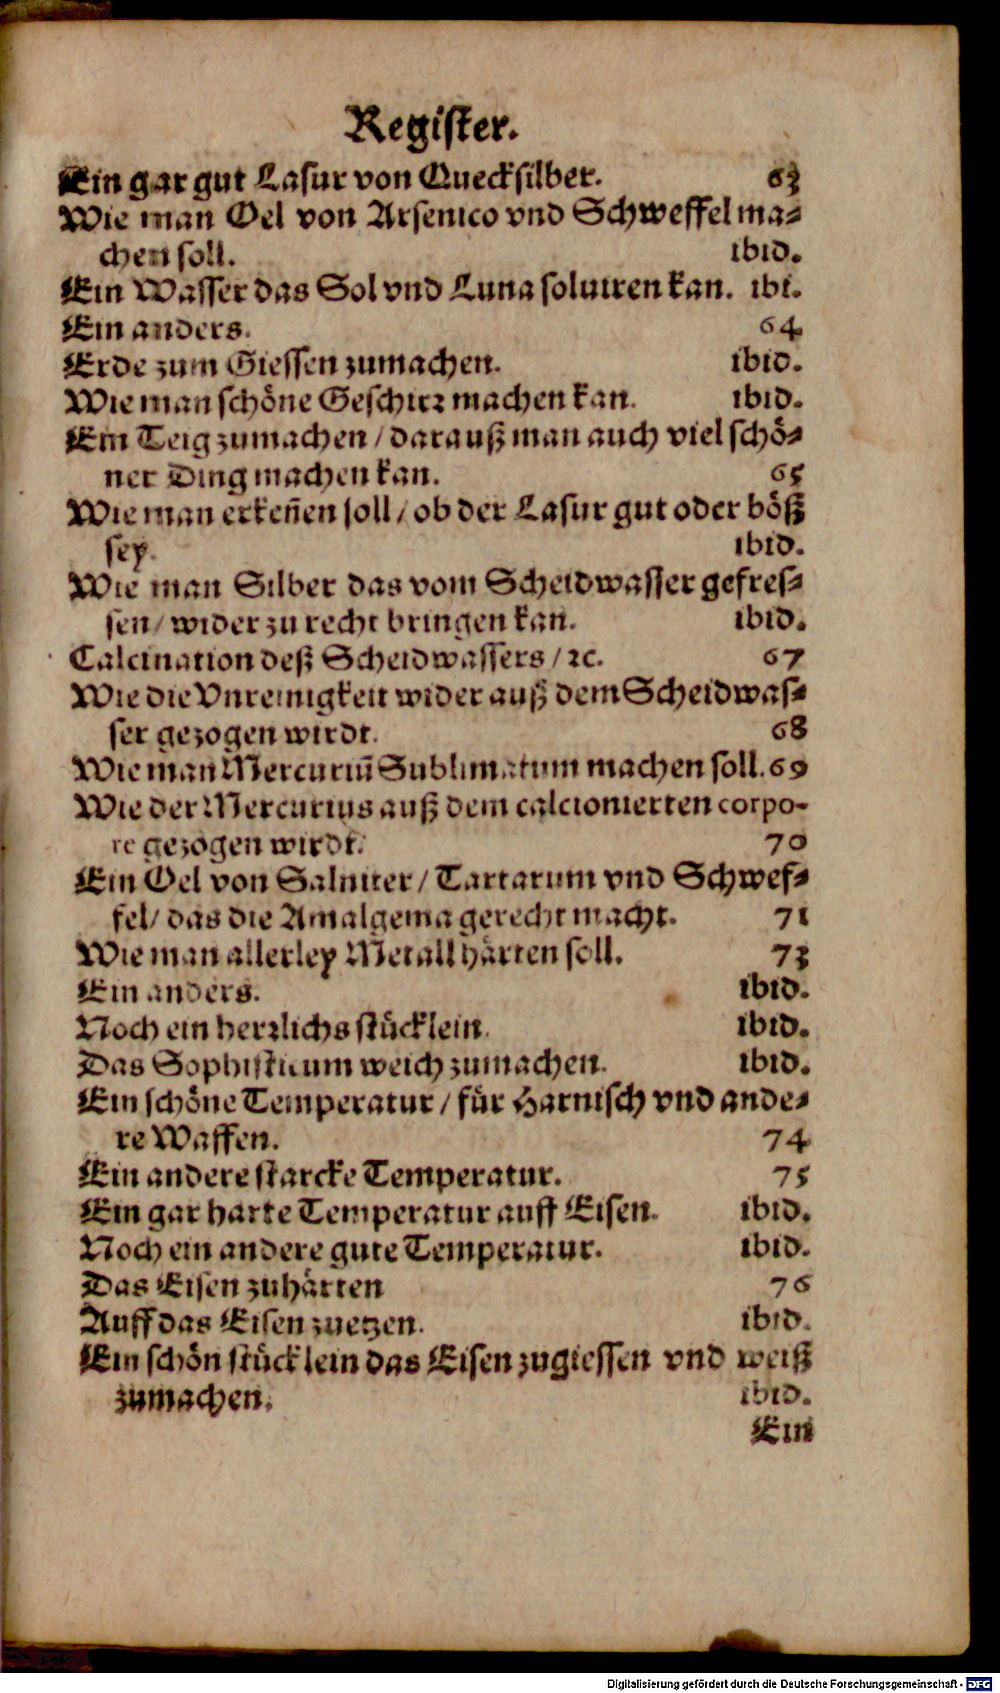 Register.
Ein gar gut Lasur von Quecksilber. 63
Wie man Oel von Arsenico vnd Schweffel ma-
chen soll. ibid.
Ein Wasser das Sol vnd Luna soluiren kan. ibi.
Ein anders. 64
Erde zum Giessen zumachen. ibid.
Wie man schöne Geschirꝛ machen kan. ibid.
Ein Teig zumachen / darauß man auch viel schö-
ner Ding machen kan. 65
Wie man erkeñen soll / ob der Lasur gut oder böß
sey. ibid.
Wie man Silber das vom Scheidwasser gefres-
sen / wider zu recht bringen kan. ibid.
Calcination deß Scheidwassers / ꝛc. 67
Wie die Vnreinigkeit wider auß dem Scheidwas-
ser gezogen wirdt. 68
Wie man Mercuriũ Sublimatum machen soll. 69
Wie der Mercurius auß dem calcionierten corpo-
re gezogen wirdt. 70
Ein Oel von Salniter / Tartarum vnd Schwef-
fel / das die Amalgema gerecht macht. 71
Wie man allerley Metall härten soll. 73
Ein anders. ibid.
Noch ein herꝛlichs stücklein. ibid.
Das Sophisticum weich zumachen. ibid.
Ein schöne Temperatur / für Harnisch vnd ande-
re Waffen. 74
Ein andere starcke Temperatur. 75
Ein gar harte Temperatur auff Eisen. ibid.
Noch ein andere gute Temperatur. ibid.
Das Eisen zuhärten 76
Auff das Eisen zuetzen. ibid.
Ein schön stücklein das Eisen zugiessen vnd weiß
zumachen. ibid.
Ein
Digitalisierung gefördert durch die Deutsche Forschungsgemeinschaft - DFG